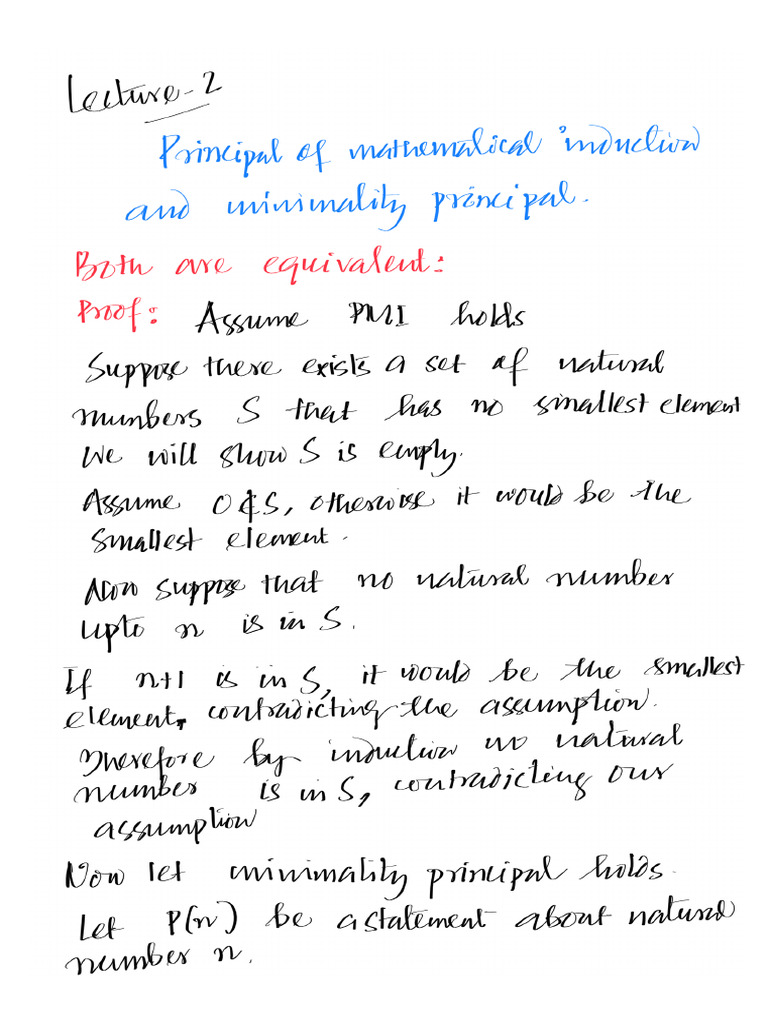 Lecture-2
Principal of mathematical induction
and minimality principal.
Both are equivalent:
Proof: Assume PMI holds
Suppose there exists a set of natural
numbers S that has no smallest element
We will show S is empty.
Assume 0∉S, otherwise it would be the
smallest element.
Now suppose that no natural number
upto n is in S.
If n+1 is in S, it would be the smallest
element, contradicting the assumption.
Therefore by induction no natural
number is in S, contradicting our
assumption
Now let minimality principal holds.
Let P(n) be a statement about natural
number n.